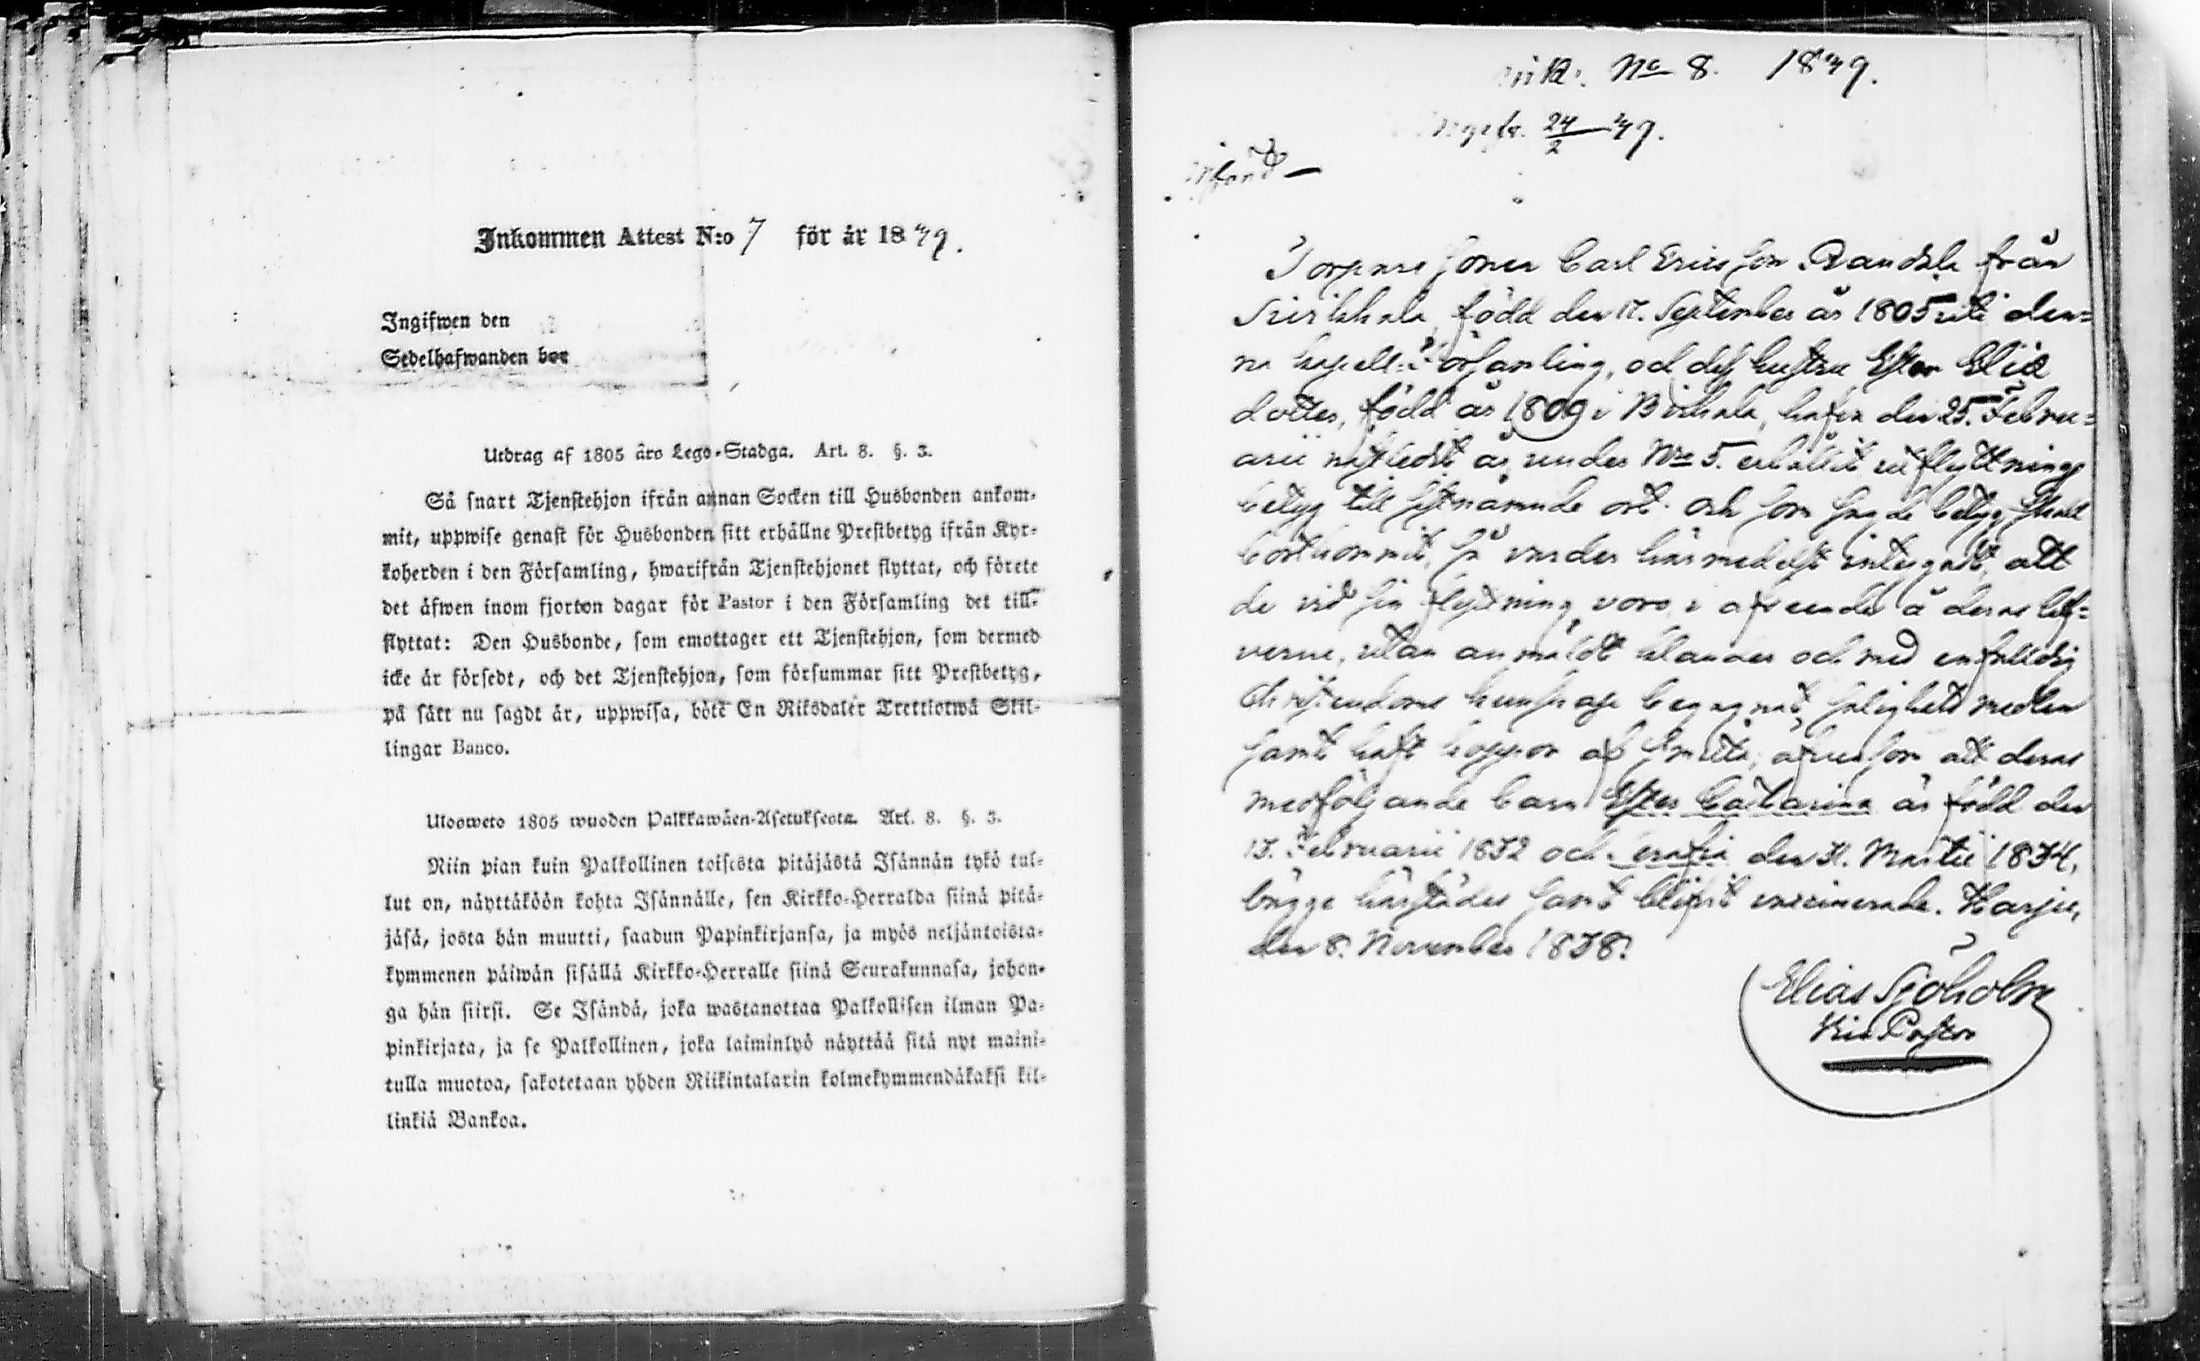 Inkommen Attest N:o 7 för år 1839.
Ingifwen den
Sedelhafwanden bor
Utdrag af 1805 års Lego-Stadga. Art. 8. §. 3.
Så snart Tjenstehjon ifrån annan Socken till Husbonden ankom-
mit, uppwise genast för Husbonden sitt erhållne Prestbetyg ifrån Kyr-
koherden i den Församling, hwarifrån Tjenstehjonet flyttat, och förete
det äfwen inom fjorton dagar för Pastor i den Församling det till-
flyttat: Den Husbonde, som emottager ett Tjenstehjon, som dermed
icke är försedt, och det Tjenstehjon, som försummar sitt Prestbetyg,
på sätt nu sagdt är, uppwisa, böte En Riksdaler Trettiotwå Skil-
lingar Banco.
Ulosweto 1805 wuoden Palkkawäen-Asetuksesta. Art. 8. §. 3.
Niin pian kuin Palkollinen toisesta pitäjästä Isännän tykö tul-
lut on, näyttäköön kohta Isännälle, sen Kirkko-Herralda siinä pitä-
jäsä, josta hän muutti, saadun Papinkirjansa, ja myös neljäntoista-
kymmenen päiwän sisällä Kirkko-Herralle siinä Seurakunnasa, johon-
ga hän siirsi. Se Isändä, joka wastanottaa Palkollisen ilman Pa-
pinkirjata, ja se Palkollinen, joka laiminlyö näyttää sitä nyt maini-
tulla muotoa, sakotetaan yhden Riikintalarin kolmekymmendäkaksi kil-
linkiä Bankoa.
No 8. 1839.
24/2 39.
Torpare sonen Carl Ericsson från
född den 17. September år 1805 uti den-
na kapell-församling, och dess hustru Ester Elias
dotter, född år 1809 i Birkala, hafva den 25. Febru-
arii år under No 5. erhållit utflyttnings
betyg till sistnämnde ort och som sagde betyg skall
bortkommit, så varder härmedelst intygadt, att
de vid sin flyttning voro i afseende å deras lef-
verne, utan anmäldt klander och med enfaldig
christendoms kunskap begagnat salighets medlen
samt haft koppor af smitta, äfvensom att deras
medföljande barn Ester Catharina är född den
13. Februarii 1832 och den 31. Martii 1834,
bägge härstädes samt blifvit vaccinerade. Harju,
den 8. November 1838.
Elias Sjöholm
Vice Pastor